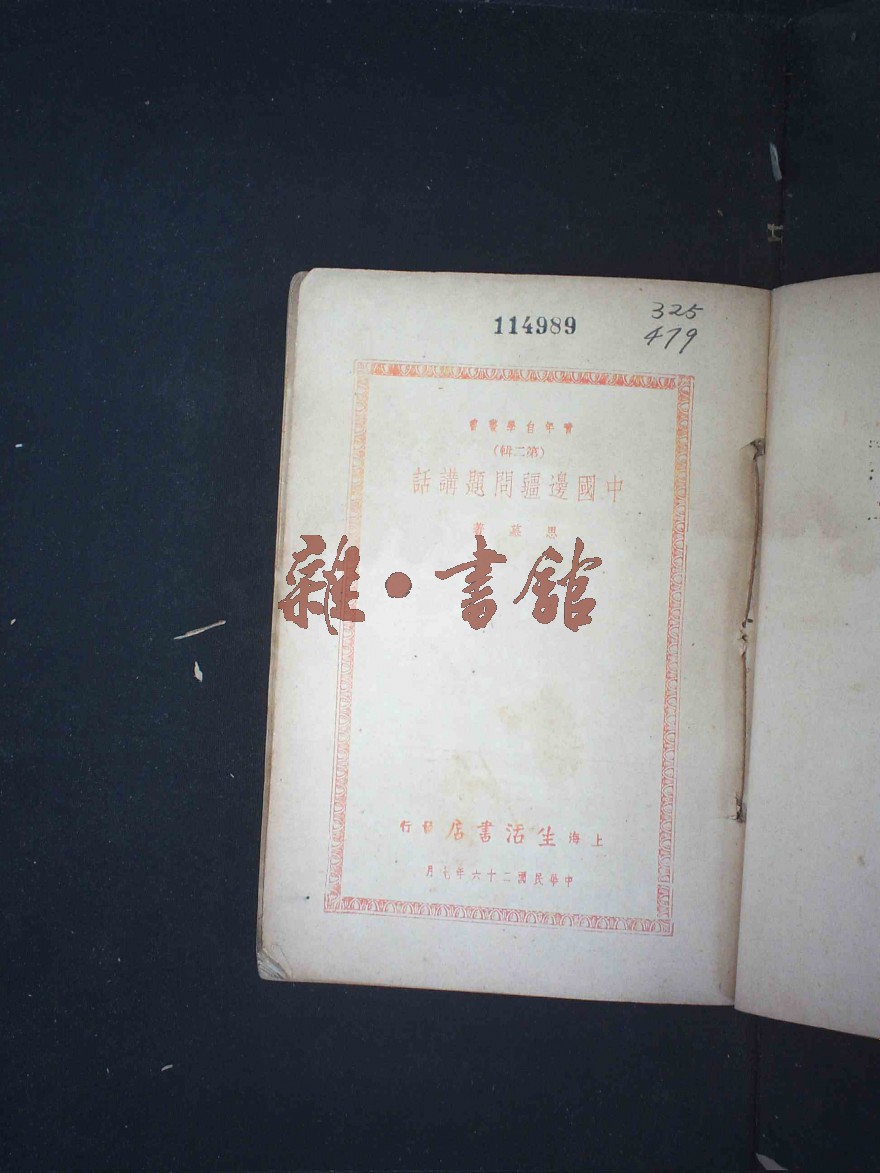 114989
325
479
青年自學叢書
(第二輯)
中國邊疆問題講話
思慕 著
雜·書館
上海生活書店發行
中華民國二十六年七月